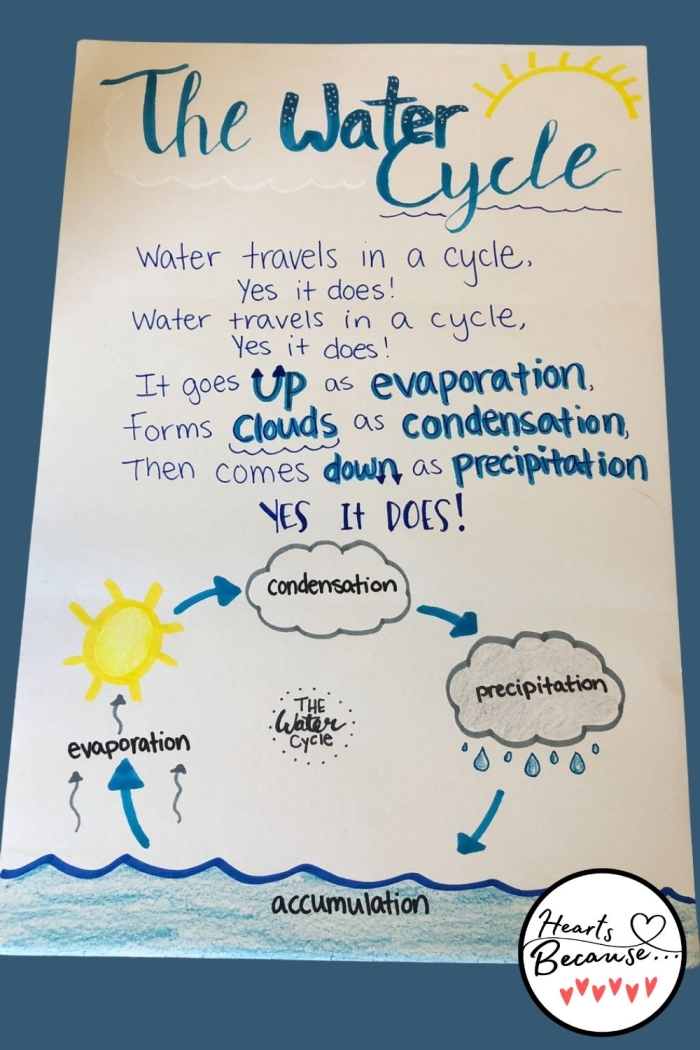 The Water
Cycle
Water travels in a cycle,
Yes it does!
Water travels in a cycle,
Yes it does!
It goes up as evaporation,
Forms clouds as condensation,
Then comes down as precipitation
YES It DOES!
condensation
precipitation
THE
Water
Cycle
evaporation
accumulation
Hearts
Because...